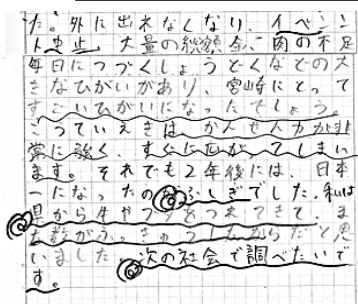 た。外に出れなくなり、イベン
ト中止、大量の総額金、肉の不足
毎日につづくしょうどくなどの大
きなひがいがあり、宮崎にとって
すごいひがいになったでしょう。
こうていえきは、かんせん力が非
常に強く、すぐに広がってしまい
ます。それでも2年後には、日本
一になったのがふしぎでした。私は
県から牛やブタをつれてきて、ま
た数がふっきゅうしたからだと思
いました。次の社会で調べたいで
す。